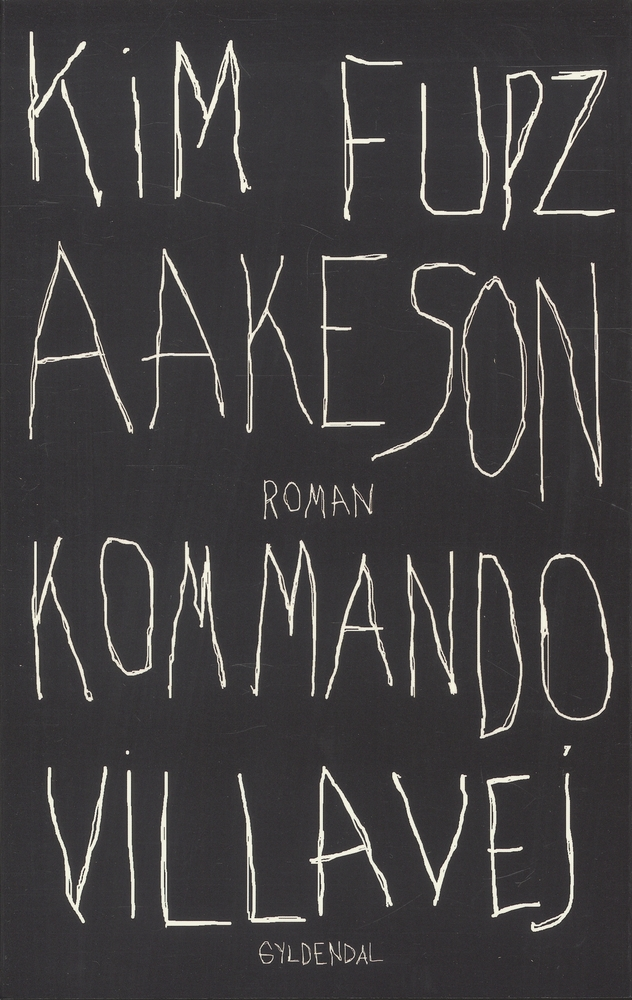 KiM FUPZ
AAKESON
ROMAN
KOMMANDO
ViLLAVEj
GYLDENDAL